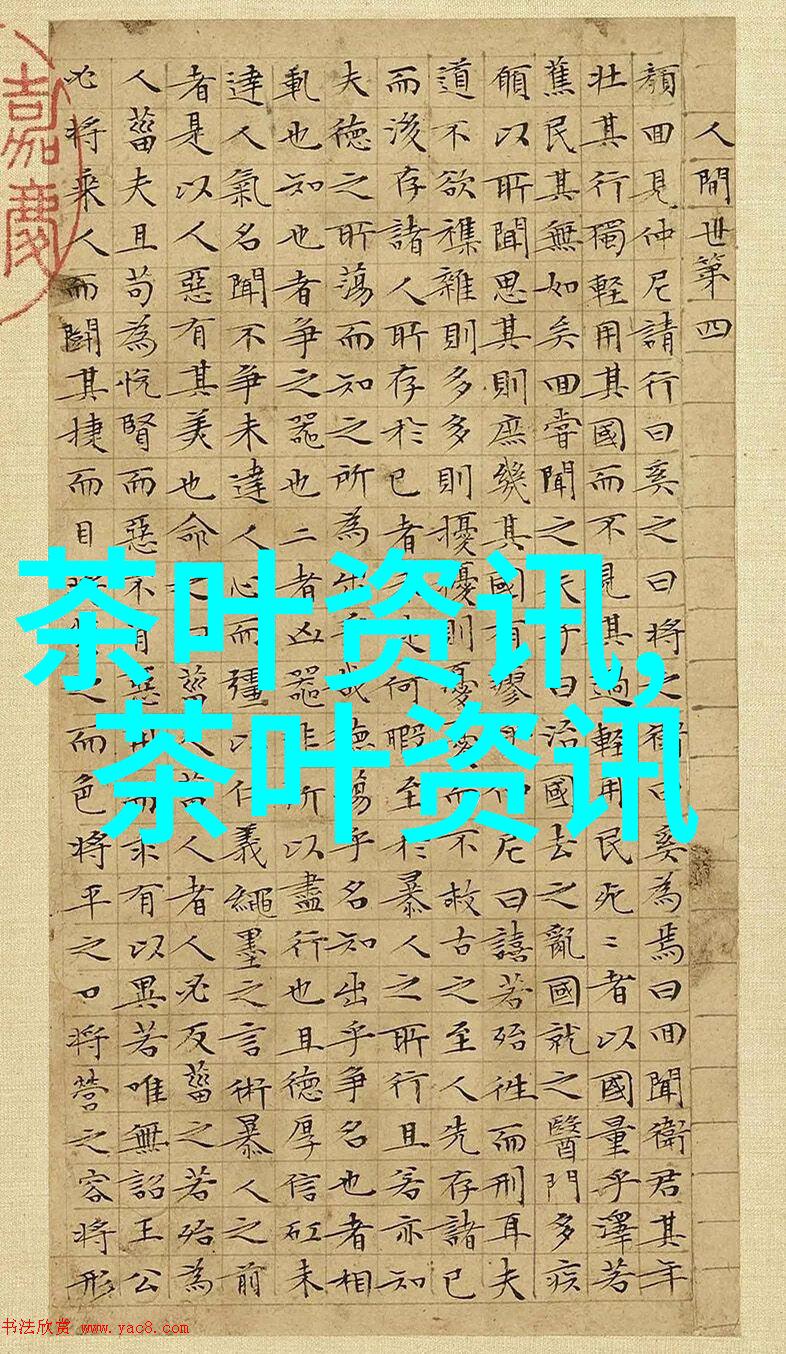 人間世第四
顏回見仲尼請行曰奚之曰將之衛曰奚為焉曰回聞衛君其年
壯其行獨輕用其國而不見其過輕用民死〻者以國量乎澤若
蕉民其無如矣回嘗聞之夫子曰治國去之亂國就之醫門多疾
願以所聞思其則庶幾其國有瘳仲尼曰譆若殆往而刑耳夫
道不欲襍雜則多多則擾擾則憂而不救古之至人先存諸己
而後存諸人所存於己者何暇至於暴人之所行且若亦知
夫德之所蕩而知之所為出乎哉德蕩乎名知出乎爭名也者相
軋也知也者爭之器也二者凶器非所以盡行也且德厚信矼未
達人氣名聞不爭未達人心而彊以仁義繩墨之言術暴人之前
者是以人惡有其美也命之曰菑人菑人者人必反菑之若殆為
人菑夫且苟為悅賢而惡不肖惡用而求有以異若唯無詔王公
必將乘人而鬭其捷而目將之而色將平之口將營之容將形
嘉慶
茶叶资讯,
茶叶资讯
书法欣赏 www.yac8.com